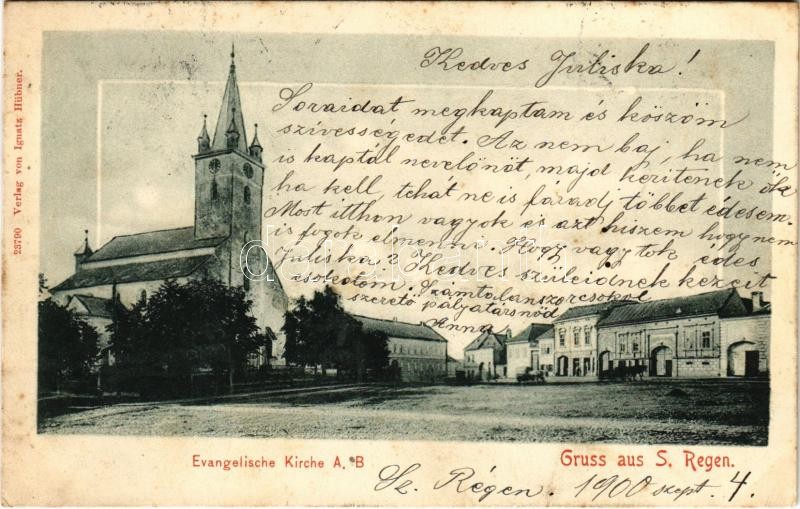 Kedves Juliska!
Soraidat megkaptam és köszöm
szívességedet. Az nem baj, ha nem
is kaptál nevelőnőt, majd keritenek ők
ha kell, tehát ne is fáradj többet édesem.
Most itthon vagyok és azt hiszem hogy nem
is fogok elmenni. Hogy vagytok édes
Juliska? Kedves szüleidnek kezeit
csokolom. Számtalanszor csokol
szerető pályatársnőd
Anna
23790 Verlag von Ignatz Hübner.
Evangelische Kirche A. B
Gruss aus S. Regen.
Sz. Régen. 1900 szept. 4.